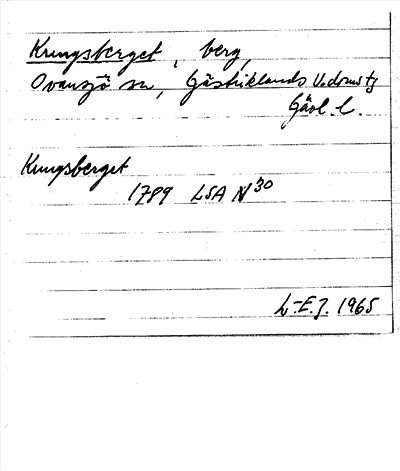 Kungsberget, berg,
Ovansjö sn, Gästriklands V. domstg
Gävl. l.
Kungsberget
1789 LSA N 30
L-E. J. 1965